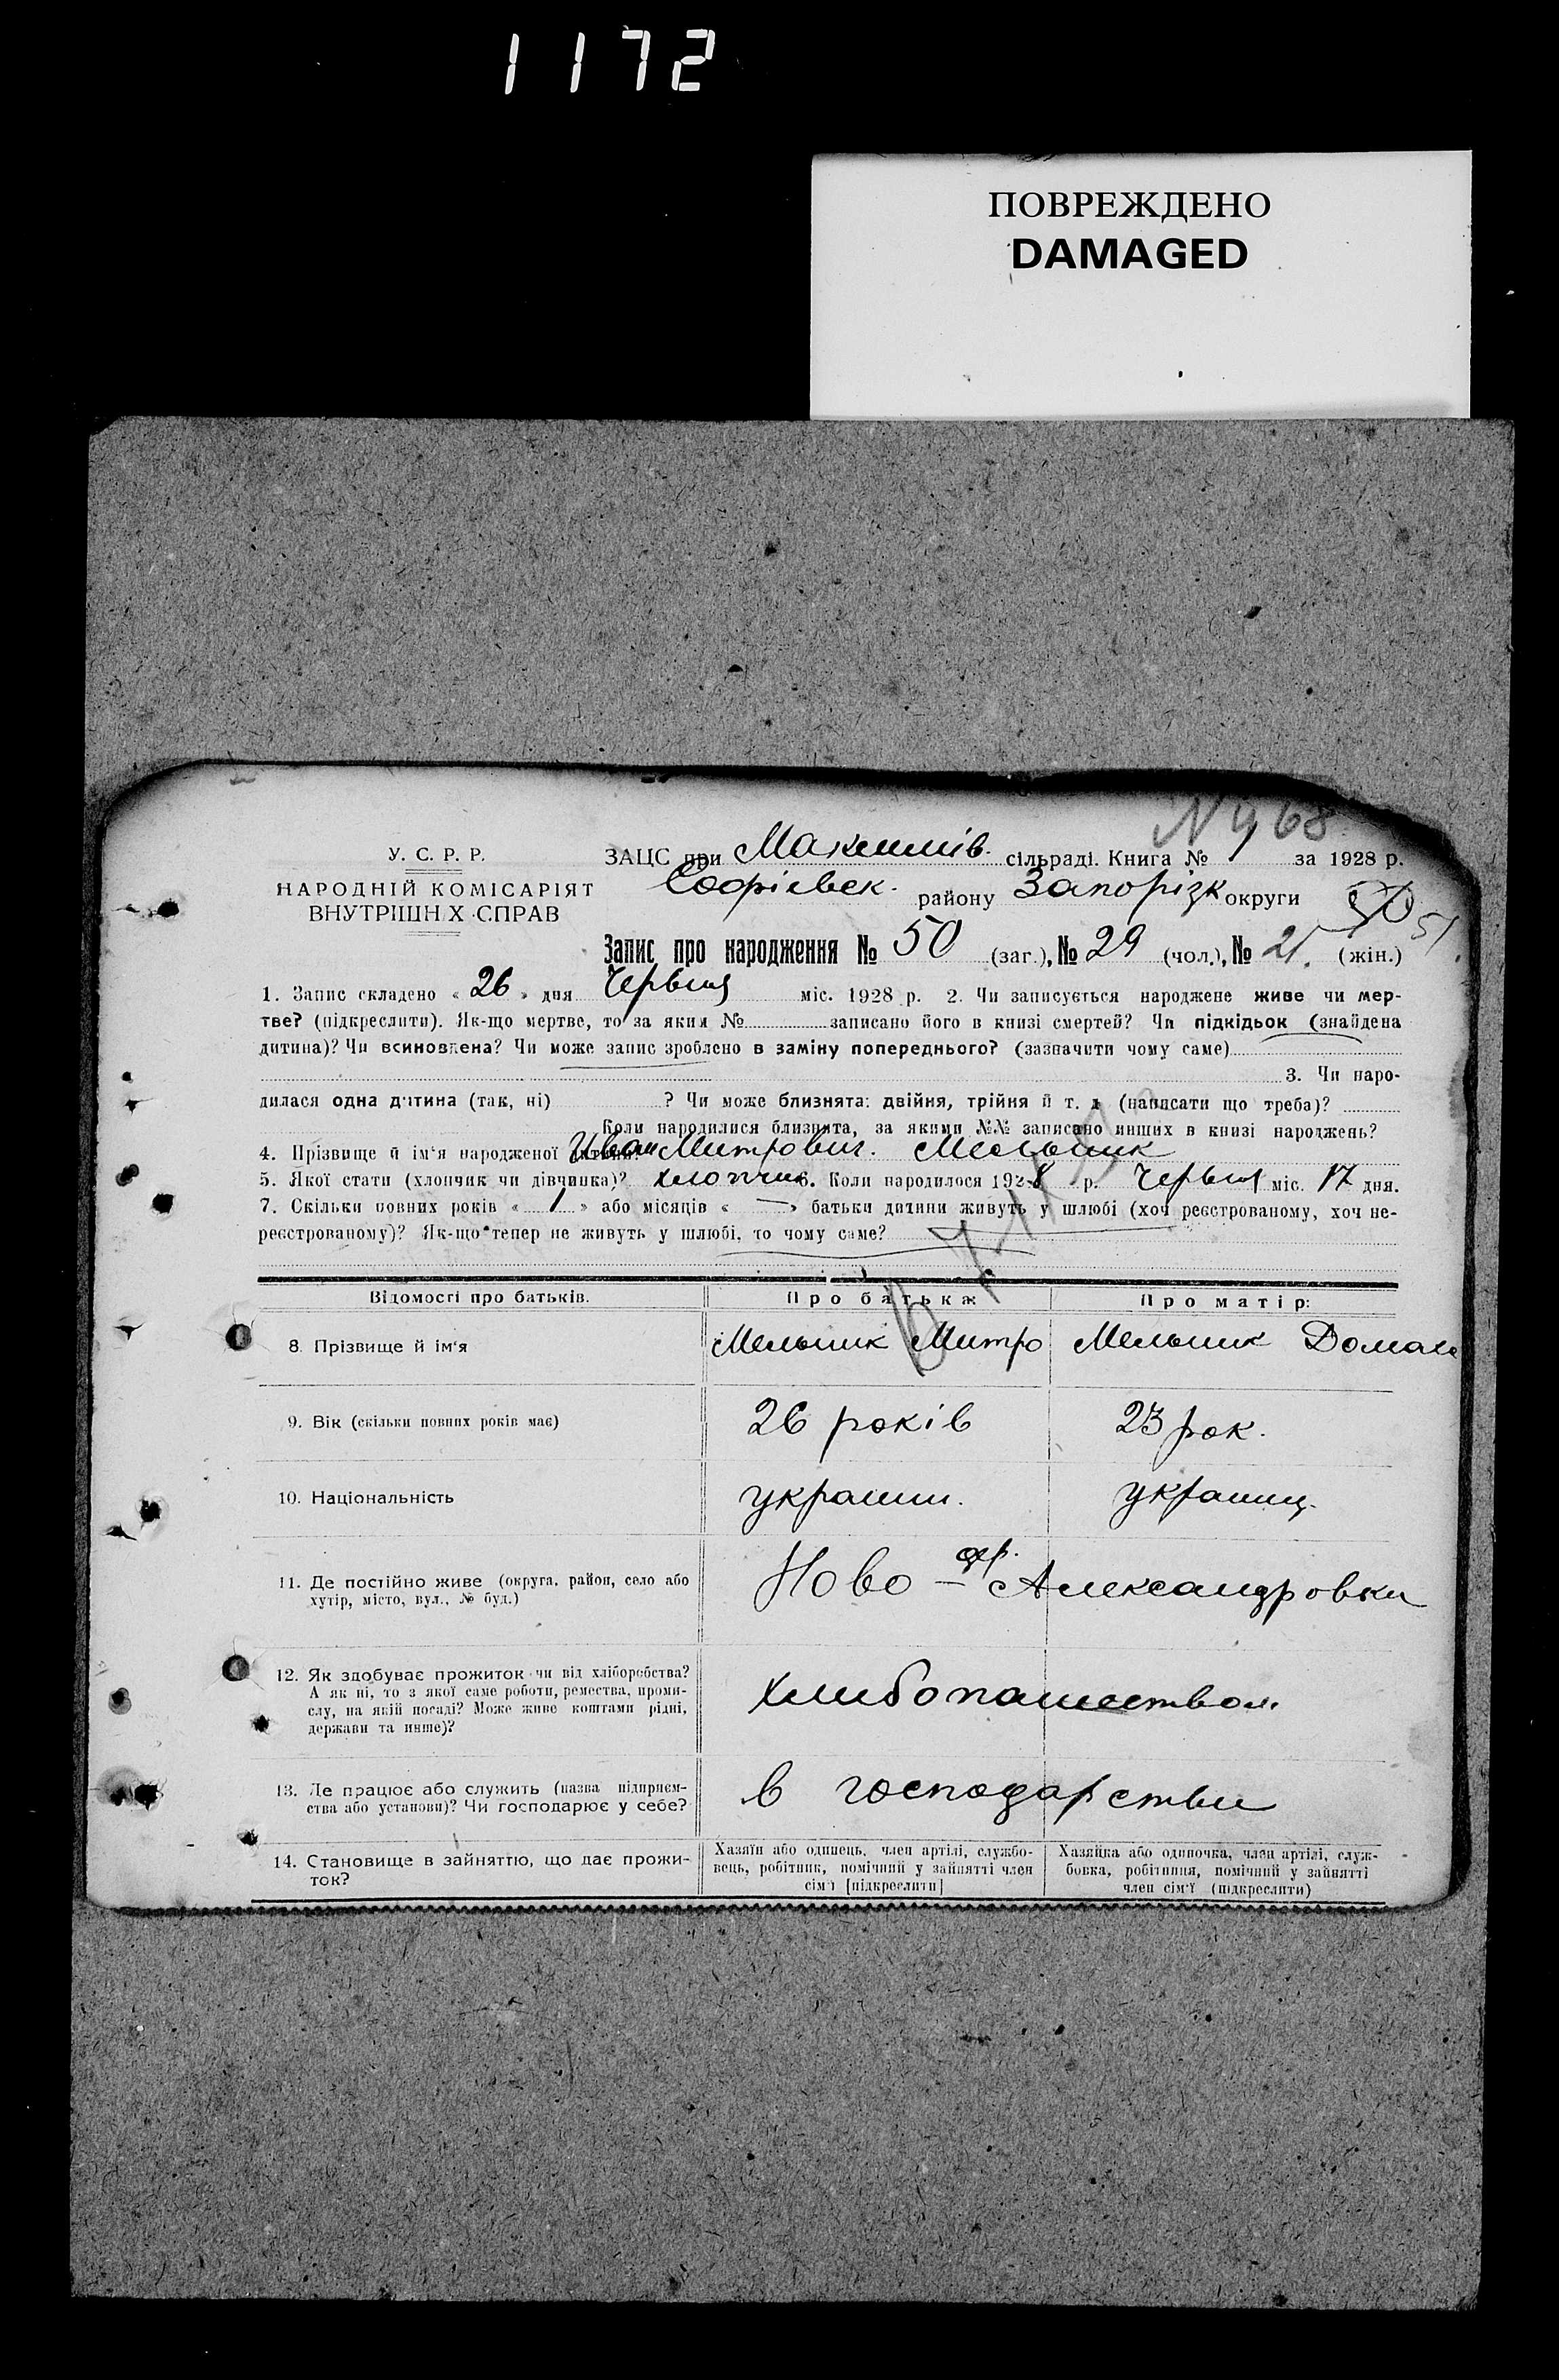 1172
ПОВРЕЖДЕНО
DAMAGED
№ 968
У. С. Р. Р.
НАРОДНІЙ КОМІСАРІЯТ
ВНУТРІШН Х СПРАВ
ЗАЦС при Максимів. сільраді. Книга № 1 за 1928 р.
Софієвск. району Запорізк округи 50 51
Запис про народження № 50 (заг.), № 29 (чол.), № 21. (жін.)
1. Запис складено « 26 » дня Червня міс. 1928 р. 2. Чи записується народжене живе чи мер-
тве? (підкреслити). Як-що мертве, то за яким № записано його в книзі смертей? Чи підкідьок (знайдена
дитина)? Чи всиновлена? Чи може запис зроблено в заміну попереднього? (зазначити чому саме)
3. Чи наро-
дилася одна дитина (так, ні) ? Чи може близнята: двійня, трійня й т. д. (написати що треба)?
Коли народилися близнята, за якими №№ записано инших в книзі народжень?
4. Прізвище й ім'я народженої дитини? Иван Митрович. Мельник
5. Якої стати (хлопчик чи дівчинка)? хлопчик 6. Коли народилося 1928 р. Червня міс. 17 дня.
7. Скільки повних років « 1 » або місяців « — » батьки дитини живуть у шлюбі (хоч реєстрованому, хоч не-
реєстрованому)? Як-що тепер не живуть у шлюбі, то чому саме?
Відомості про батьків. Про батька: Про матір:
8. Прізвище й ім'я Мельник Митро Мельник Домаха
9. Вік (скільки повних років має) 26 років 23 рок.
10. Національність украинн. украинц.
11. Де постійно живе (округа, район, село або
хутір, місто, вул., № буд.)
дер.
Ново — Александровка
12. Як здобуває прожиток чи від хліборобства?
А як ні, то з якої саме роботи, ремества, проми-
слу, на якій посаді? Може живе коштами рідні,
держави та инше)?
хлибопашеством
13. Де працює або служить (назва підприєм-
ства або установи)? Чи господарює у себе?
в господарстви
14. Становище в зайняттю, що дає прожи-
ток?
Хазяїн або одинець, член артілі, службо-
вець, робітник, помічний у зайнятті член
сім'ї [підкреслити]
Хазяйка або одиночка, член артілі, служ-
бовка, робітниця, помічний у зайнятті
член сім'ї (підкреслити)